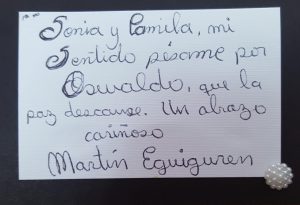 Sonia y Camila, mi
Sentido pésame por
Oswaldo, que la
paz descanse. Un abrazo
cariñoso
Martín Eguiguren